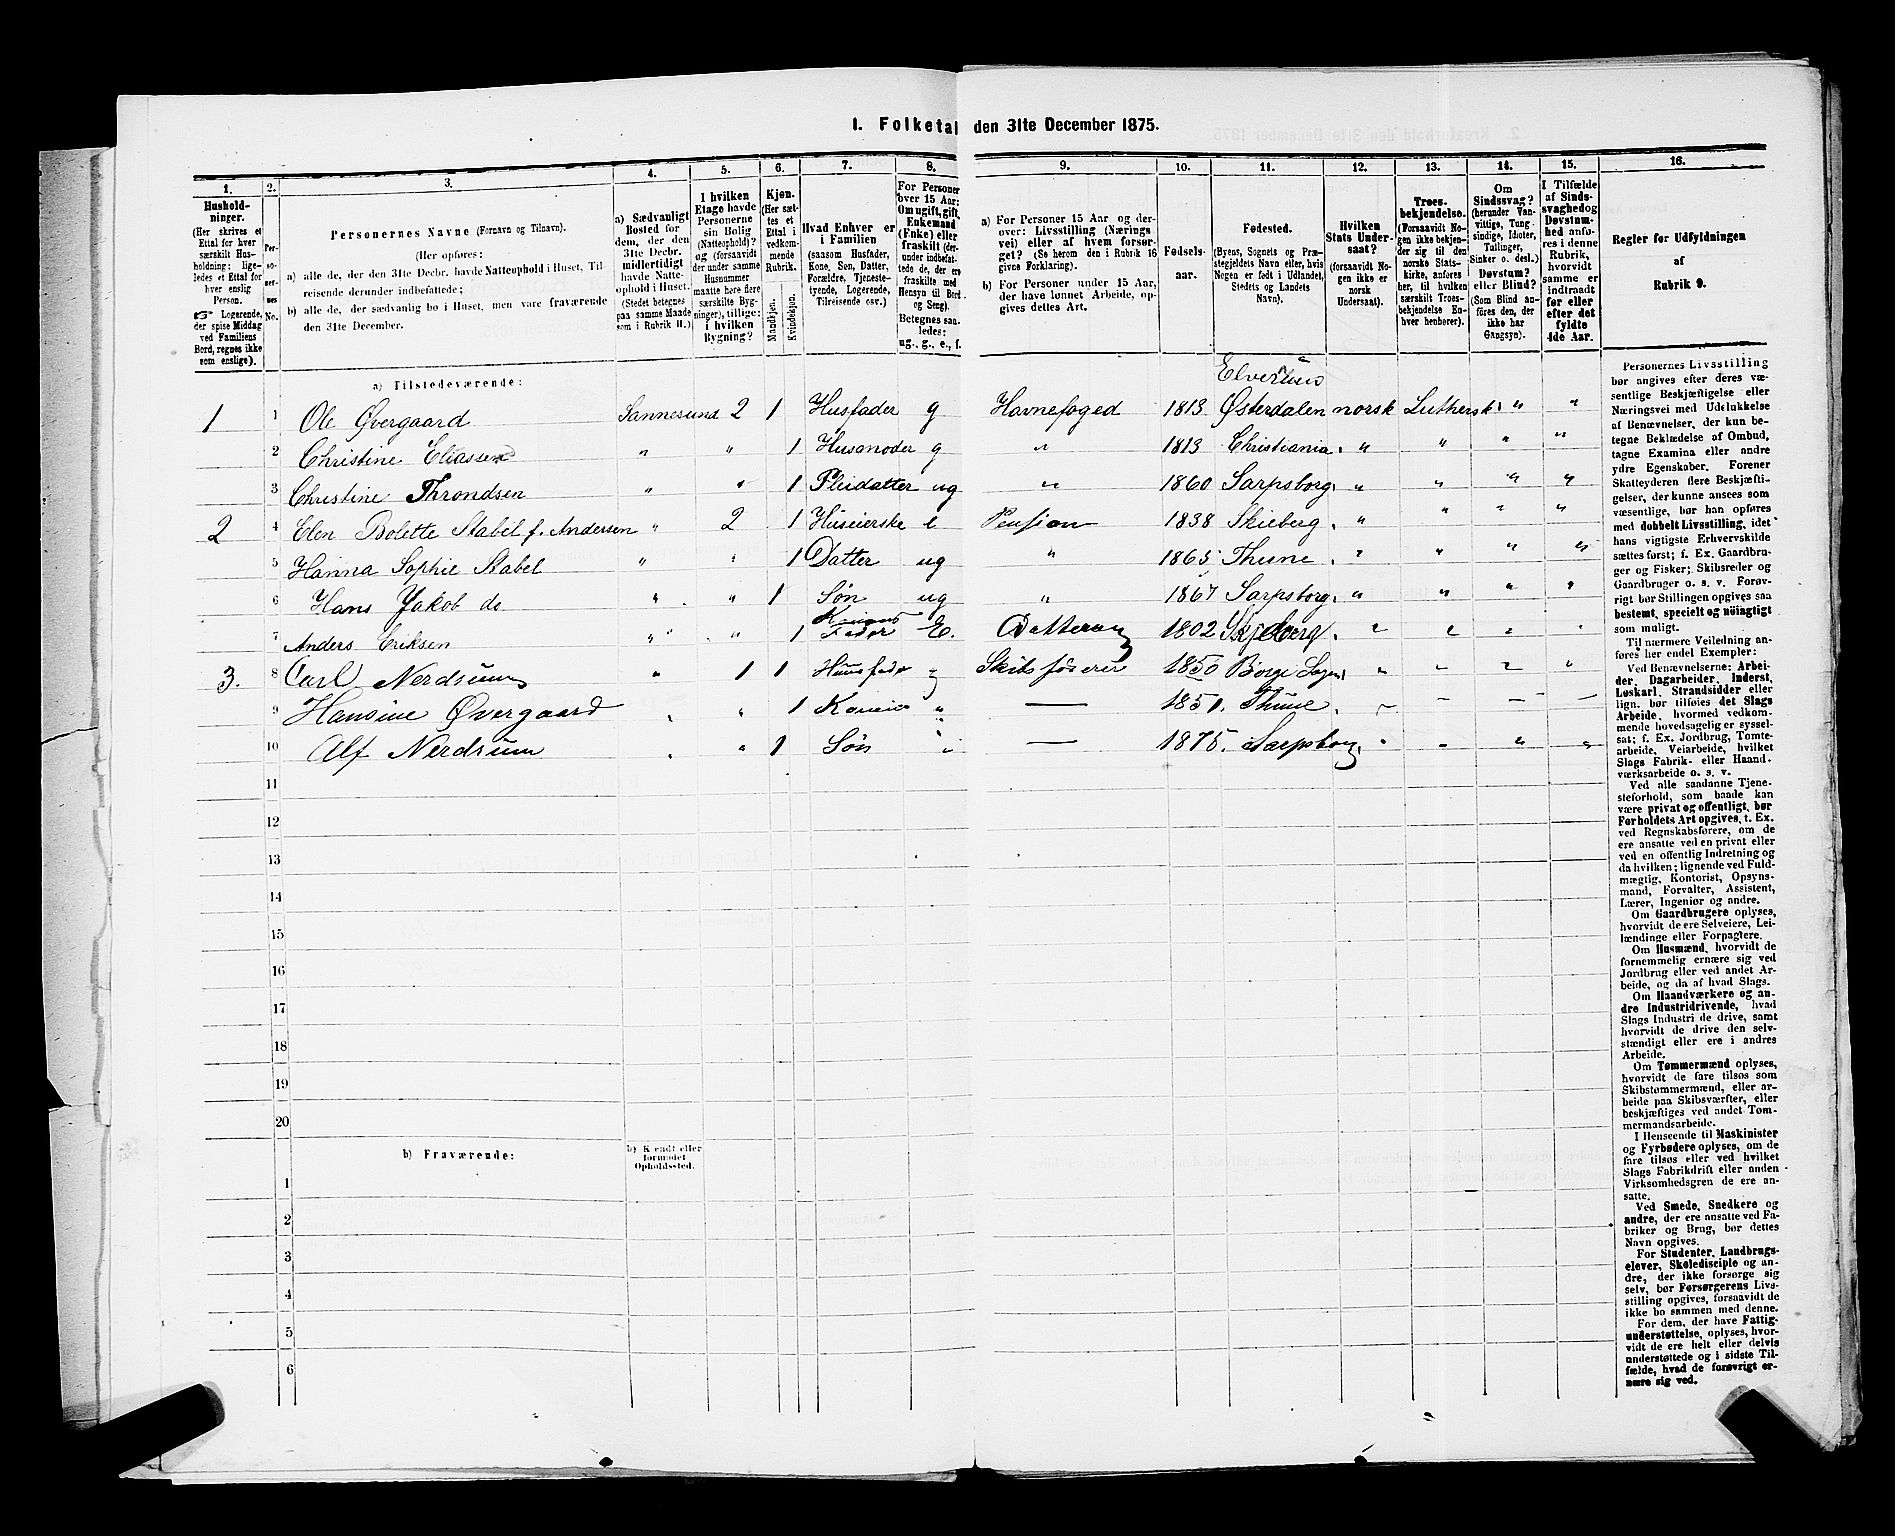 1. Folketal den 31te December 1875.
1.
Hushold-
ninger.
(Her skrives et
Ettal for hver
særskilt Hus-
holdning: lige-
ledes et Ettal for
hver enslig
Person.
☞ Logerende,
der spise Middag
ved Familiens
Bord, regnes ikke
som enslige).
2.
Per-
so-
ner-
nes
No.
3.
Personernes Navne (Fornavn og Tilnavn).
(Her opføres:
a) alle de, der den 31te Decbr. havde Natteophold i Huset, Til-
reisende derunder indbefattede;
b) alle de, der sædvanlig bo i Huset, men vare fraværende
den 31te December.
4.
a) Sædvanligt
Bosted for
dem, der den
31te Decbr.
midlertidigt
havde Natte-
ophold i Huset.
(Stedet betegnes
paa samme Maade
som i Rubrik 11.)
5.
I hvilken
Etage havde
Personerne
sin Bolig
(Natteophold)?
og (forsaavidt
der under samme
Husnummer
maatte høre flere
særskilte Byg-
ninger), tillige:
i hvilken
Bygning?
6.
Kjøn.
(Her sæt-
tes et
Ettal i
vedkom-
mende
Rubrik.
Mandkjøn.
Kvindekjøn.
7.
Hvad Enhver er
i Familien
(saasom Husfader,
Kone, Søn, Datter,
Forældre, Tjeneste-
tyende, Logerende,
Tilreisende osv.)
8.
For Personer
over 15 Aar:
Om ugift, gift,
Enkemand
(Enke) eller
fraskilt (der-
under indbefat-
tede de, der ere
fraskilte med
Hensyn til Bord
og Seng).
Betegnes saa-
ledes:
ug., g., e., f.
9.
a) For Personer 15 Aar og der-
over: Livsstilling (Nærings-
vei) eller af hvem forsør-
get? (Se herom den i Rubrik 16
givne Forklaring).
b) For Personer under 15 Aar,
der have lønnet Arbeide, op-
gives dettes Art.
10.
Fødsels-
aar.
11.
Fødested.
(Byens, Sognets og Præ-
stegjeldets Navn eller, hvis
Nogen er født i Udlandet,
Stedets og Landets
Navn).
12.
Hvilken
Stats Under-
saat?
(forsaavidt No-
gen ikke er
norsk
Undersaat).
13.
Troes-
bekjendelse.
(Forsaavidt No-
gen ikke bekjen-
der sig til den
norske Stats-
kirke, anføres
her, til hvilken
særskilt Troes-
bekjendelse En-
hver henhører).
14.
Om
Sindssvag?
(herunder Van-
vittige, Tung-
sindige, Idioter,
Tullinger,
Sinker o. desl.)
Døvstum?
eller Blind?
(Som Blind an-
føres den, der
ikke har
Gangsyn).
15.
I Tilfælde
af Sinds-
svaghed og
Døvstum-
hed anfø-
res i denne
Rubrik,
hvorvidt
samme er
indtraadt
før eller
efter det
fyldte
4de Aar.
16.
Regler for Udfyldningen
af
Rubrik 9.
a) Tilstedeværende:
Elverum
1 1 Ole Øvergaard Sannesund 2 1 Husfader g Havnefoged 1813. Østerdalen norsk Luthersk " "
2 Christine Eliassen " " 1 Husmoder g " 1813 Christiania " " " "
3 Christine Throndsen " " 1 Pleidatter ug " 1860 Sarpsborg " " " "
2 4 Elen Bolette Stabel f. Andersen " 2 1 Huseierske e Pension 1838 Skieberg " " " "
5 Hanna Sophie Stabel " " 1 Datter ug " 1865 Thune " " " "
6 Hans Jakob do " " 1 Søn ug " 1867 Sarpsborg " " " "
7 Anders Eriksen " " 1 Konens Fader E. 1802 Skjeberg " " " "
3. 8 Carl Nerdrum " 1 1 Huusfader g Skibsfører 1850 Borge Sogn " " " "
9 Hansine Øvergaard " " 1 Kone " — 1851. Thune " — — —
10 Alf Nerdrum " " 1 Søn " — 1875. Sarpsborg " " " "
11
12
13
14
15
16
17
18
19
20
b) Fraværende:
b) Kjendt eller
formodet
Opholdssted.
1
2
3
4
5
6
Personernes Livsstilling
bør angives efter deres væ-
sentlige Beskjæftigelse eller
Næringsvei med Udelukkelse
af Benævnelser, der kun be-
tegne Beklædelse af Ombud,
tagne Examina eller andre
ydre Egenskaber. Forener
Skatteyderen flere Beskjæfti-
gelser, der kunne ansees som
væsentlige, bør han opføres
med dobbelt Livsstilling, idet
hans vigtigste Erhvervskilde
sættes først; f. Ex. Gaardbru-
ger og Fisker; Skibsreder og
Gaardbruger o. s. v. Forøv-
rigt bør Stillingen opgives saa
bestemt, specielt og nøiagtigt
som muligt.
Til nærmere Veiledning an-
føres her endel Exempler:
Ved Benævnelserne: Arbei-
der, Dagarbeider, Inderst,
Løskarl, Strandsidder eller
lign. bør tilføies det Slags
Arbeide, hvormed vedkom-
mende hovedsagelig er syssel-
sat; f. Ex. Jordbrug, Tomte-
arbeide, Veiarbeide, hvilket
Slags Fabrik- eller Haand-
værksarbeide o. s. v.
Ved alle saadanne Tjene-
steforhold, som baade kan
være privat og offentligt, bør
Forholdets Art opgives, t. Ex.
ved Regnskabsførere, om de
ere ansatte ved en privat eller
ved en offentlig Indretning og
da hvilken; lignende ved Fuld-
mægtig, Kontorist, Opsyns-
mand, Forvalter, Assistent,
Lærer, Ingeniør og andre.
Om Gaardbrugere oplyses,
hvorvidt de ere Selveiere, Lei-
lændinge eller Forpagtere.
Om Husmænd, hvorvidt de
fornemmelig ernære sig ved
Jordbrug eller ved andet Ar-
beide, og da af hvad Slags.
Om Haandværkere og an-
dre Industridrivende, hvad
Slags Industri de drive, samt
hvorvidt de drive den selv-
stændigt eller ere i andres
Arbeide.
Om Tømmermænd oplyses,
hvorvidt de fare tilsøs som
Skibstømmermænd, eller ar-
beide paa Skibsværfter, eller
beskjæftiges ved andet Tøm-
mermandsarbeide.
I Henseende til Maskinister
og Fyrbødere oplyses, om de
fare tilsøs eller ved hvilket
Slags Fabrikdrift eller anden
Virksomhedsgren de ere an-
satte.
Ved Smede, Snedkere og
andre, der ere ansatte ved Fa-
briker og Brug, bør dettes
Navn opgives.
For Studenter, Landbrugs-
elever, Skoledisciple og an-
dre, der ikke forsørge sig
selv, bør Forsørgerens Livs-
stilling opgives, forsaavidt de
ikke bo sammen med denne.
For dem, der have Fattig-
understøttelse, oplyses, hvor-
vidt de ere helt eller delvis
understøttede og i sidste Til-
fælde, hvad de forøvrigt er-
nære sig ved.